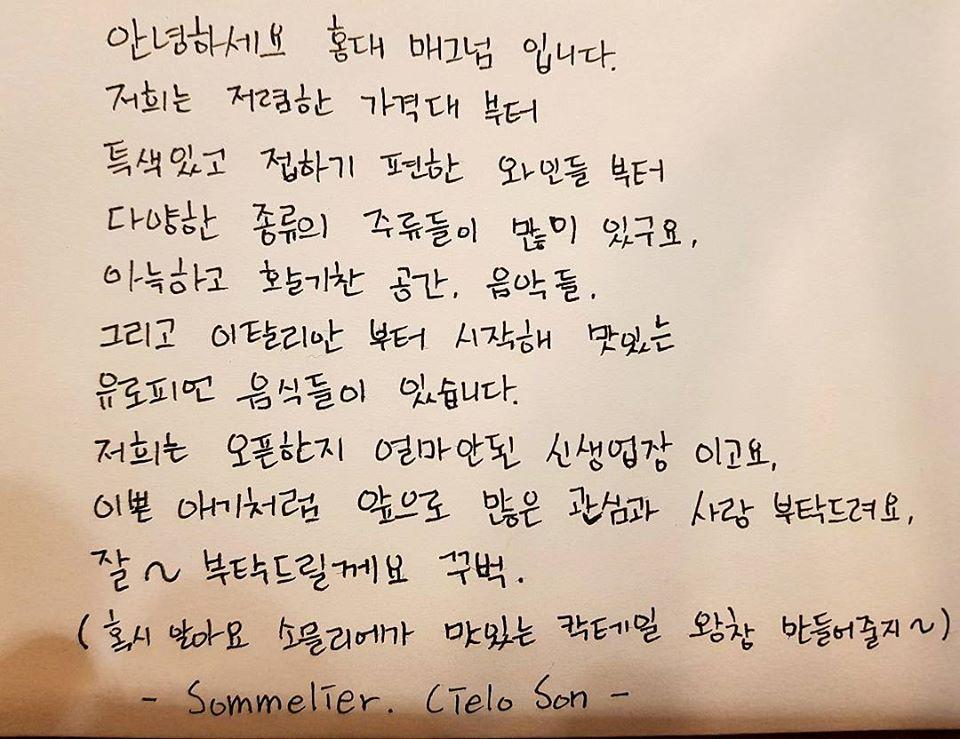 안녕하세요 홍대 매그넘 입니다.
저희는 저렴한 가격대 부터
특색있고 접하기 편한 와인들 부터
다양한 종류의 주류들이 많이 있구요,
아늑하고 활기찬 공간, 음악들,
그리고 이탈리안 부터 시작해 맛있는
유로피언 음식들이 있습니다.
저희는 오픈한지 얼마안된 신생업장 이고요,
이쁜 애기처럼 앞으로 많은 관심과 사랑 부탁드려요,
잘~ 부탁드릴께요 꾸벅.
(혹시 알아요 소믈리에가 맛있는 칵테일 왕창 만들어줄지~)
- Sommelier. Cielo Son -